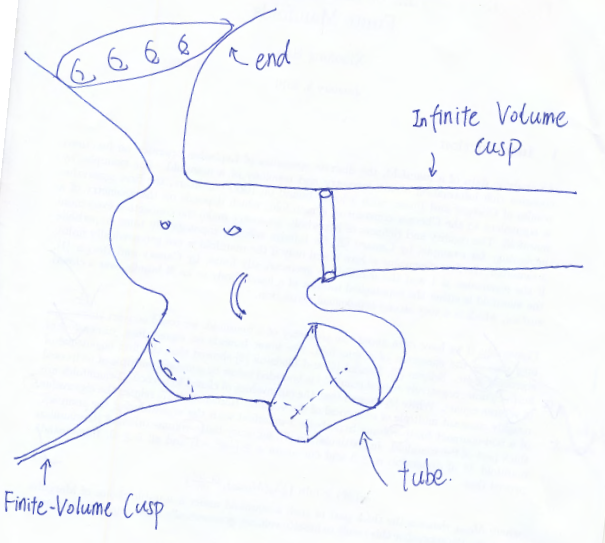 end
Infinite Volume
cusp
tube.
Finite-Volume Cusp